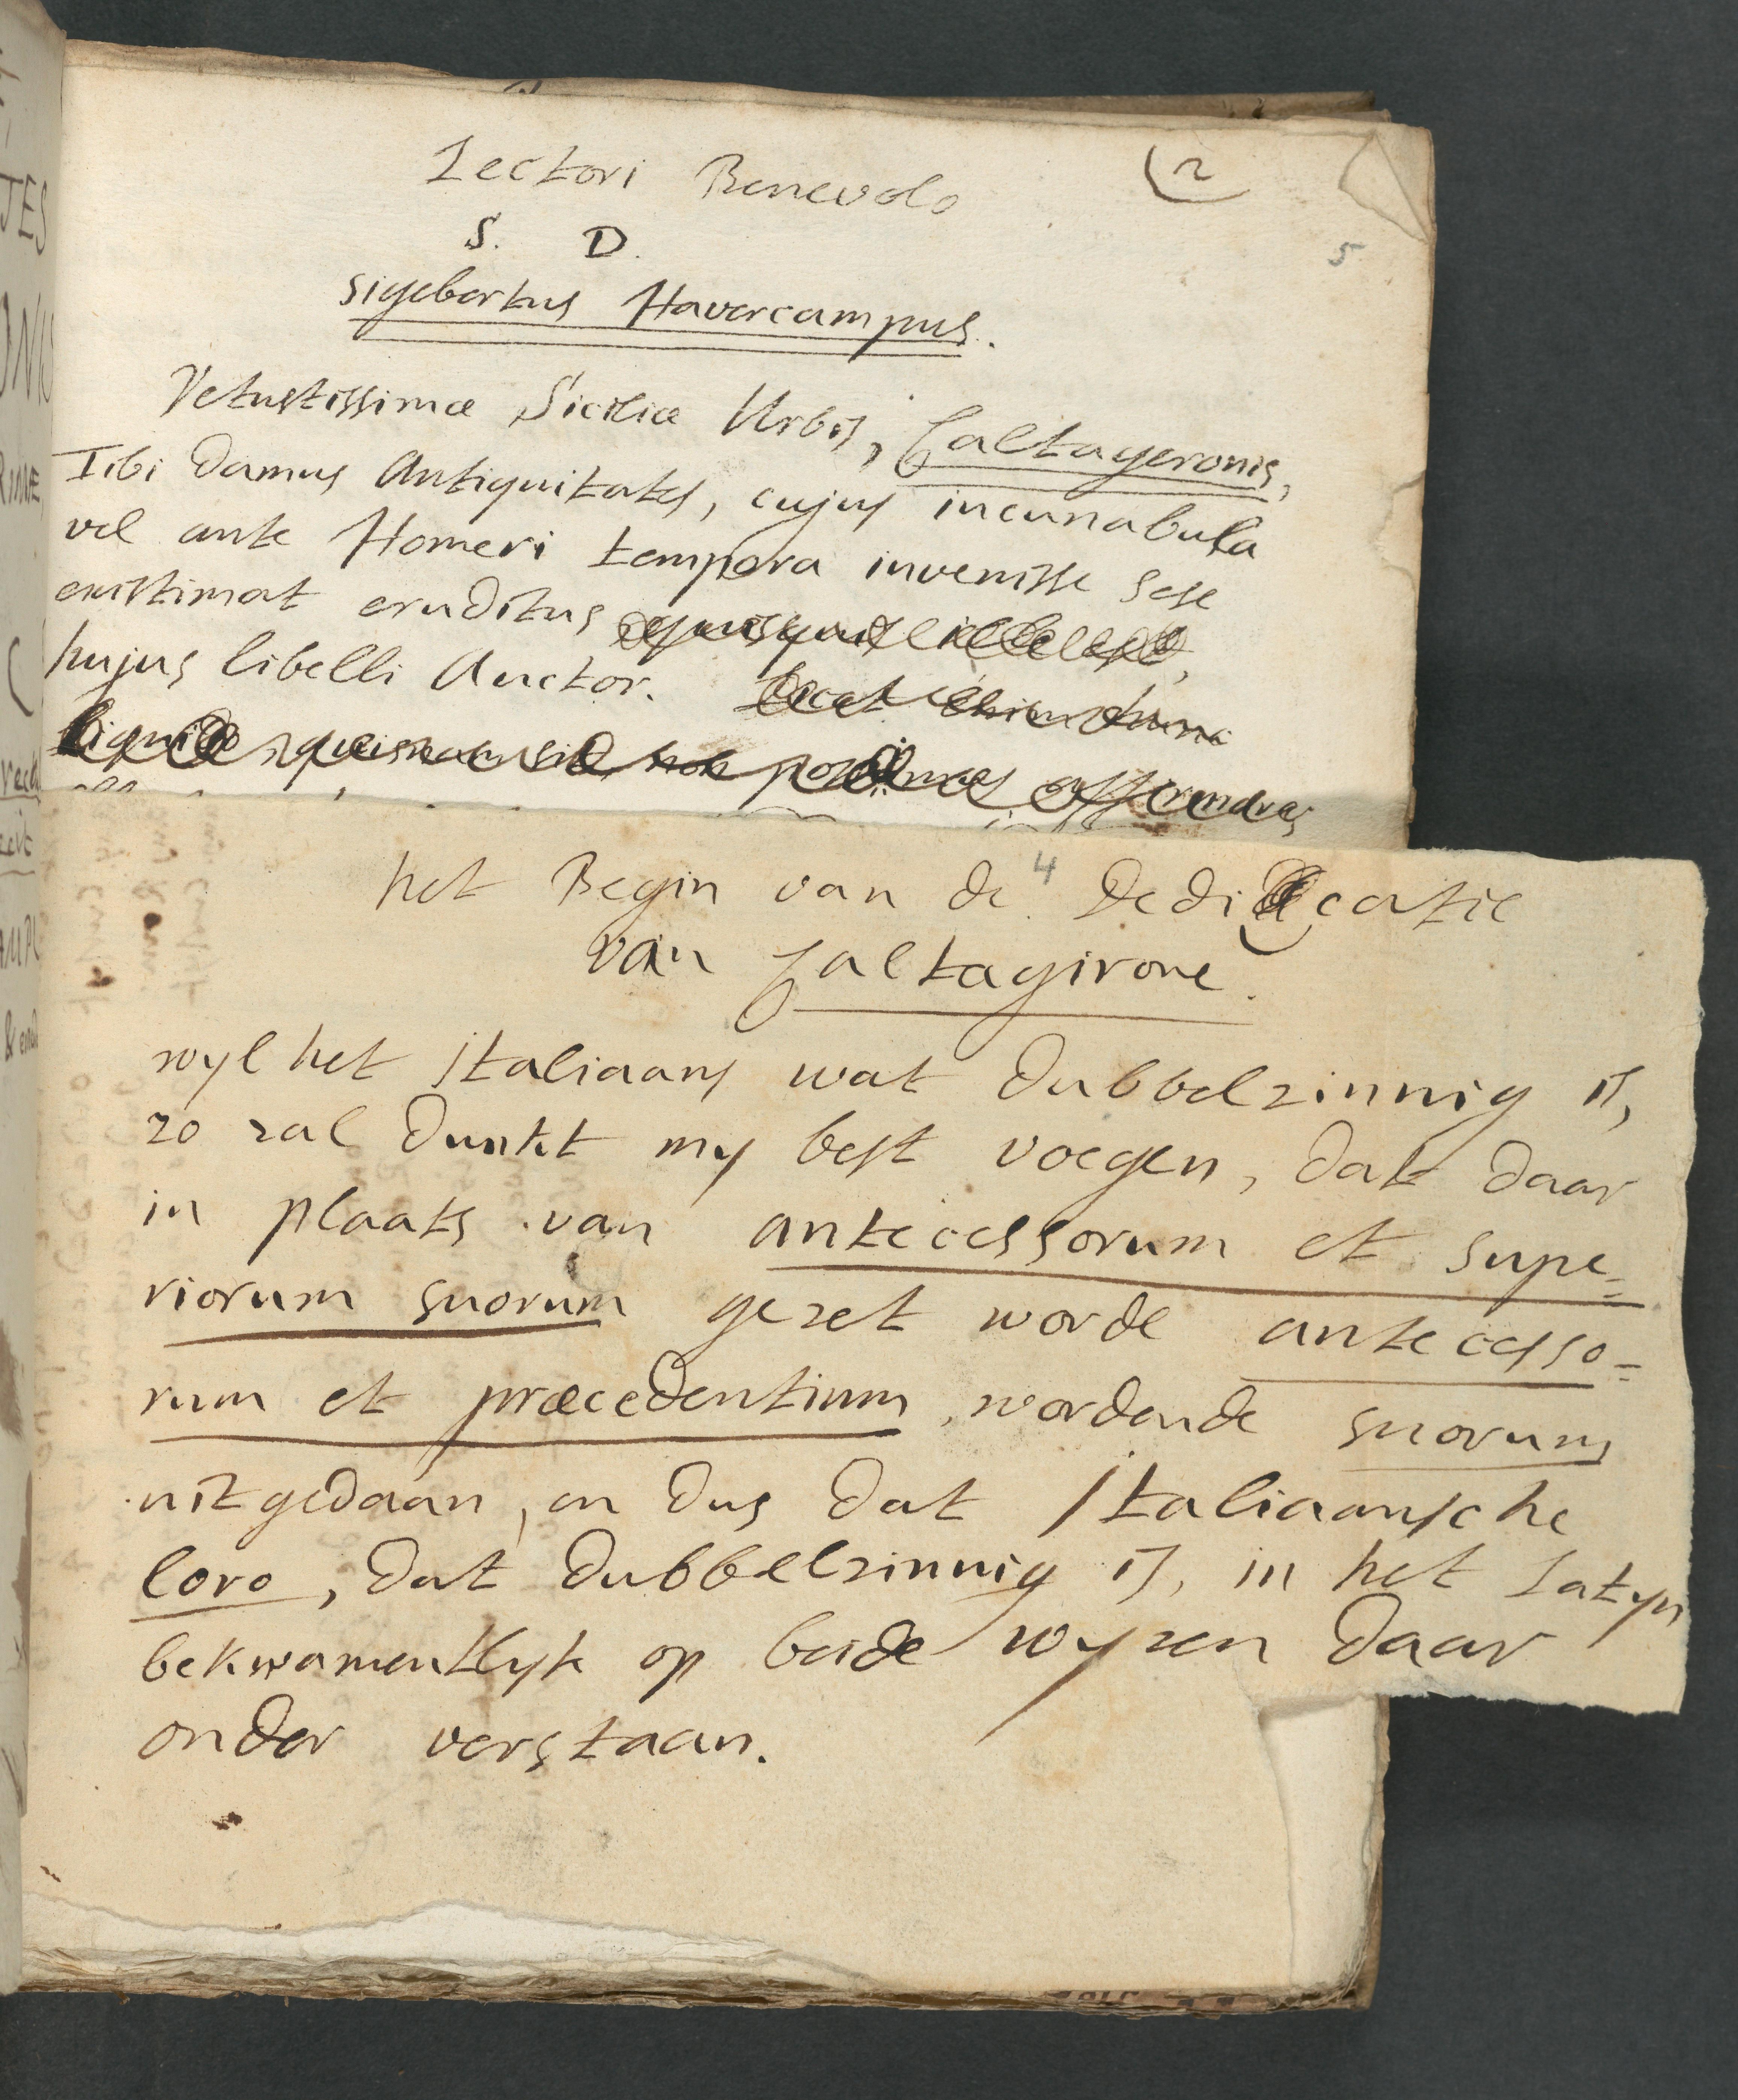 Lectori Benevolo
(2
5
S. D.
Sigebertus Havercampus.
Vetustissimæ Siciliæ Urbis, Caltageronis,
Tibi damus Antiquitates, cujus incunabula
vel ante Homeri tempora invenisse sese
existimat eruditus quisquis ille est,
hujus libelli Auctor. licet
liquido, quisnam sit, non possimus
4
het Begin van de Dedicatie
van Caltagirone.
wyl het Italiaans wat dubbelzinnig is,
zo zal dunkt my best voegen, dat daar
in plaats van antecessorum et supe=
riorum suorum gezet worde antecesso=
rum et præcedentium, wordende suorum
uitgedaan, en dus dat Italiaansche
loro, dat dubbelzinnig is, in het Latyn
bekwamentlyk op beide wyzen daar
onder verstaan.